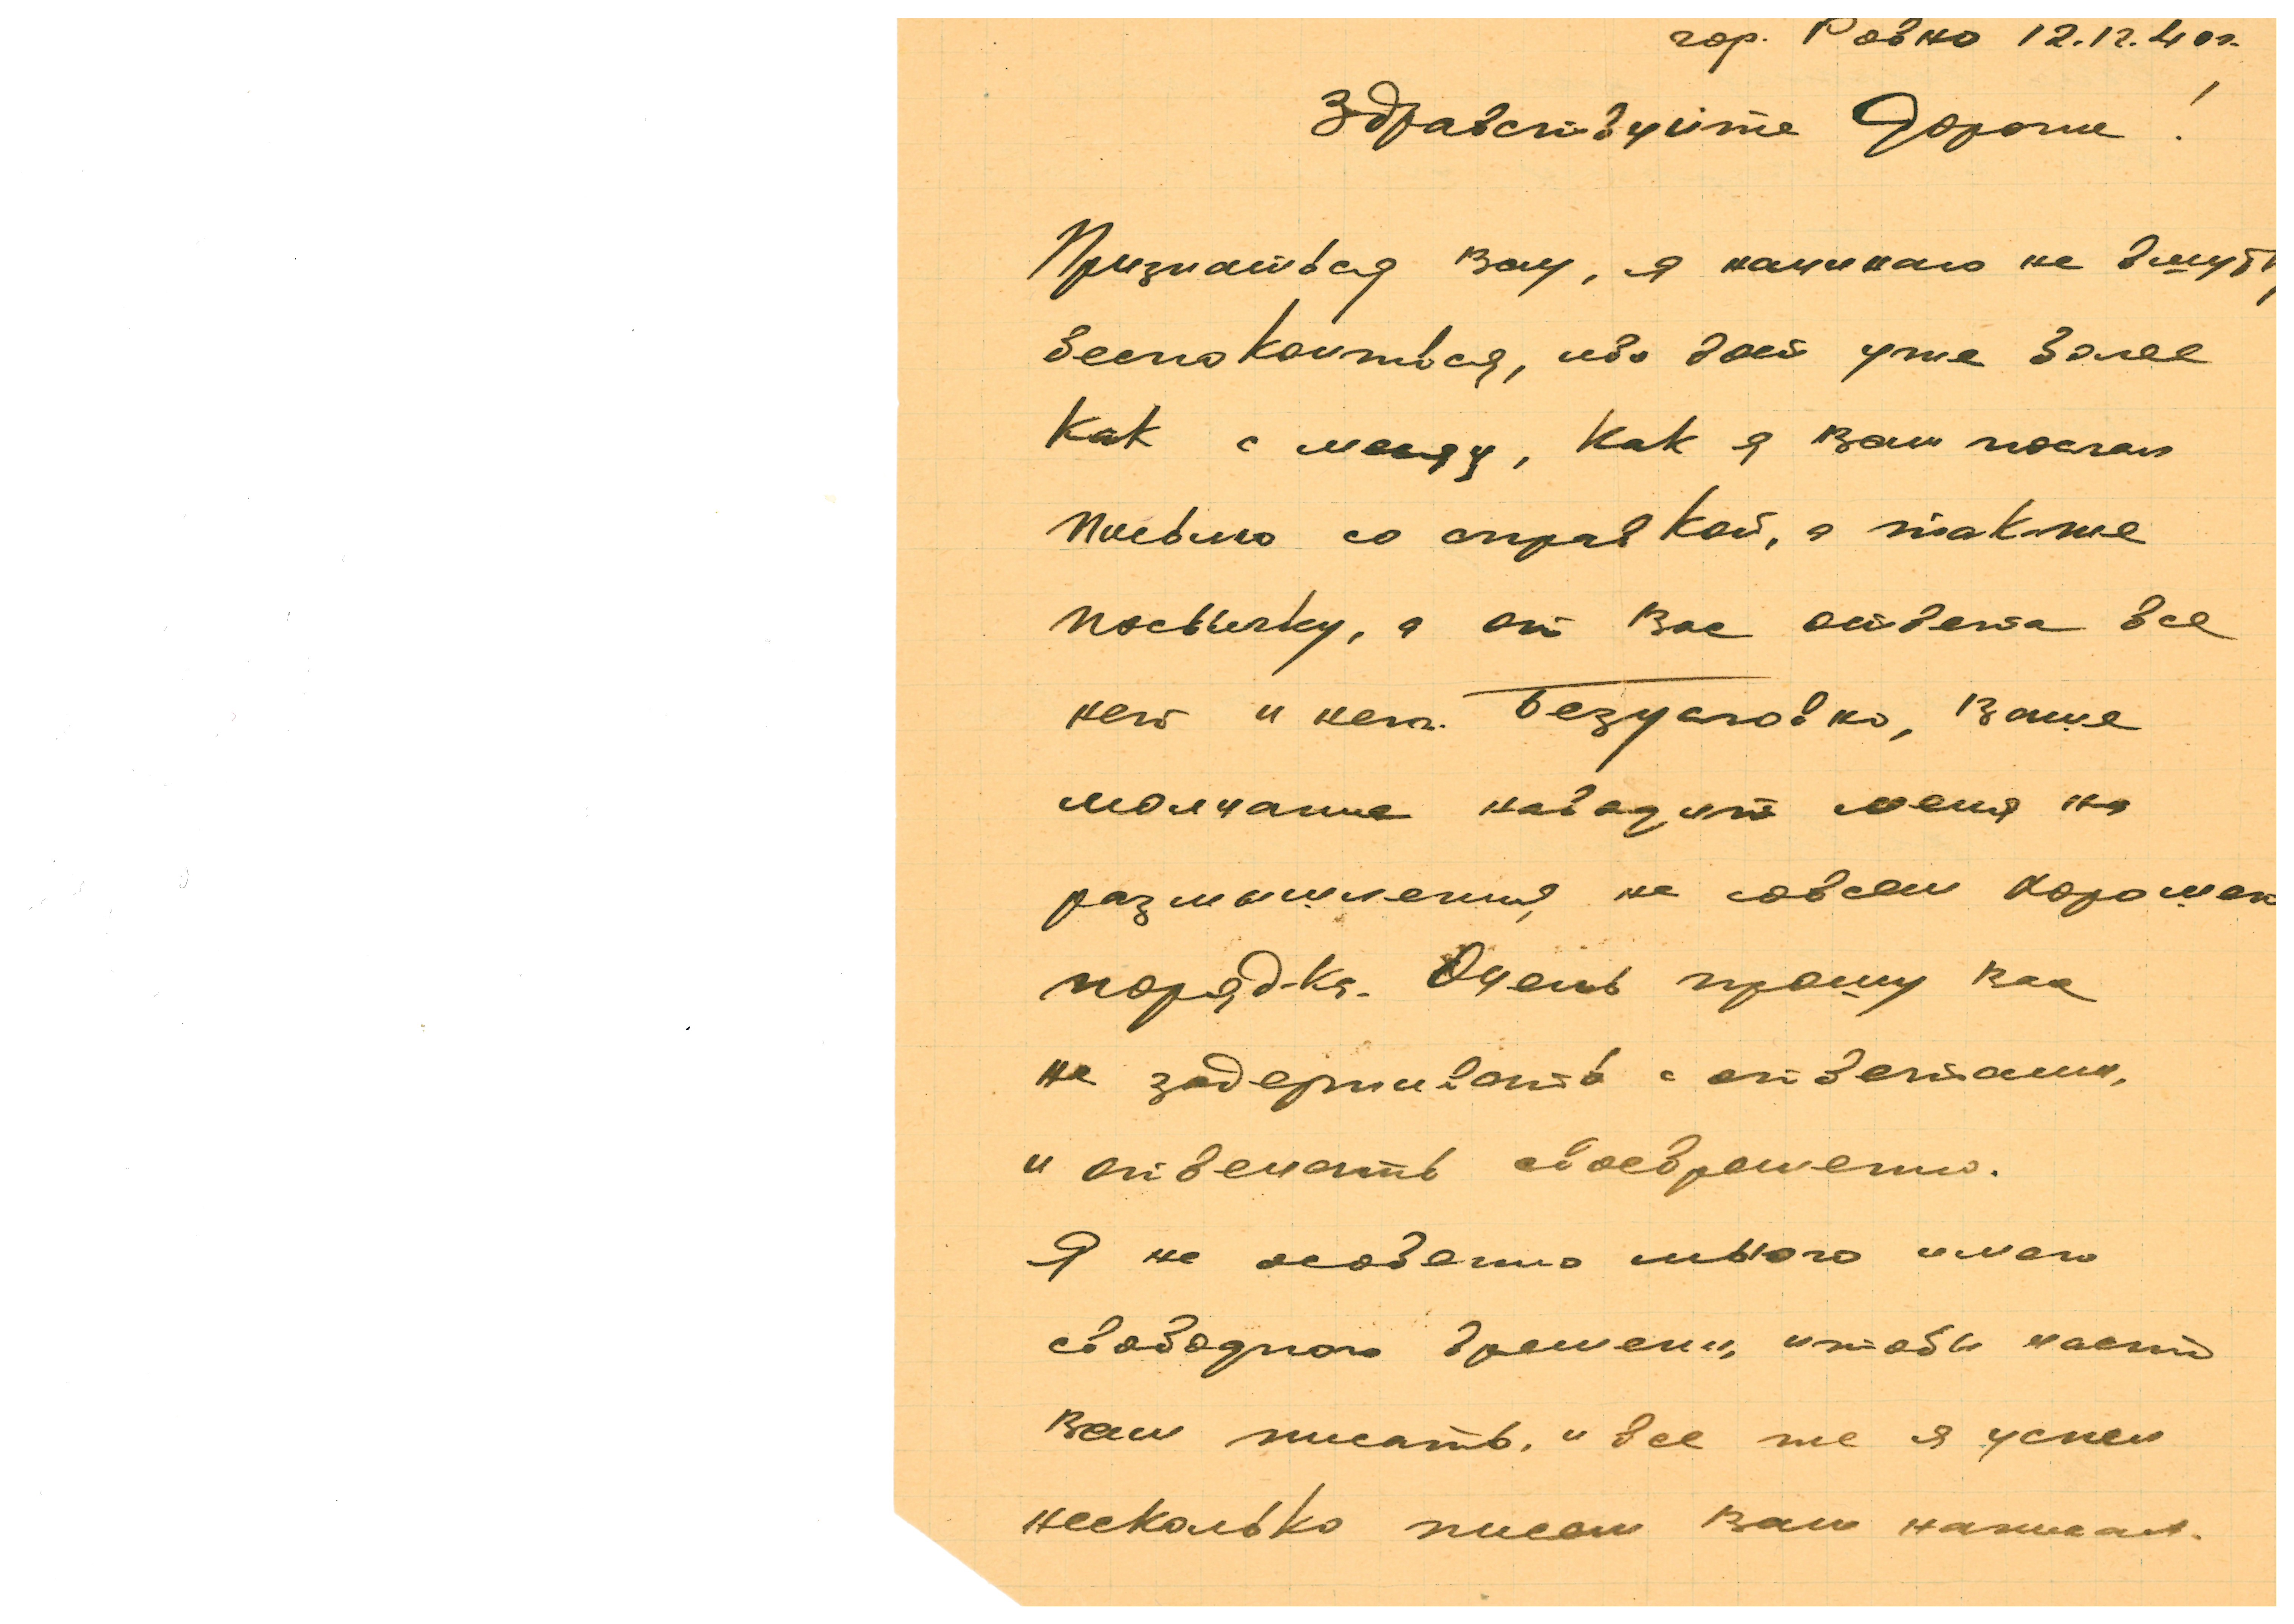 гор. Ровно 12.12.40г.
Здравствуйте Дорогие!
Признаться Вам, я начинаю не в шутку
беспокоиться, ибо вот уже более
как с месяц, как я Вам послал
письмо со справкой, а также
посылку, а от Вас ответа все
нет и нет. Безусловно, Ваше
молчание наводит меня на
размышления, не совсем хорошего
порядка. Очень прошу Вас
не задерживать с ответами,
и отвечать своевременно.
Я не особенно много имею
свободного времени, чтобы часто
Вам писать, и все же я успел
несколько писем Вам написал.